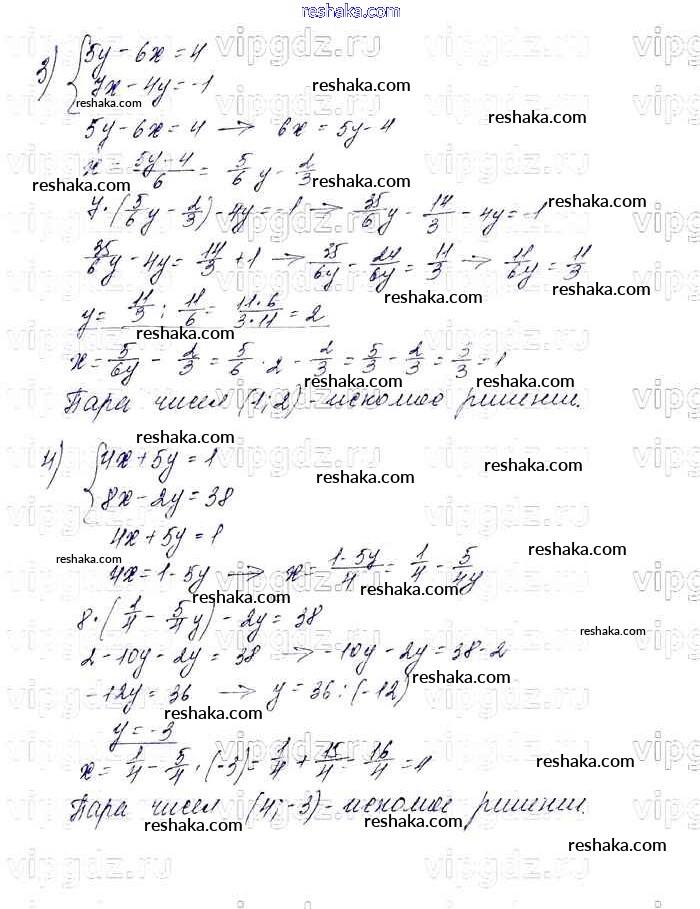 reshaka.com
3) { 5y - 6x = 4
7x - 4y = -1
5y - 6x = 4 → 6x = 5y - 4
x = (5y - 4)/6 = 5/6 y - 2/3
7 · (5/6 y - 2/3) - 4y = -1 → 35/6 y - 14/3 - 4y = -1
35/6 y - 4y = 14/3 + 1 → 35/6y - 24/6y = 11/3 → 11/6y = 11/3
y = 11/3 : 11/6 = 11·6/3·11 = 2
x = 5/6y - 2/3 = 5/6 · 2 - 2/3 = 5/3 - 2/3 = 3/3 = 1
Пара чисел (1; 2) - искомое решении.
4) { 4x + 5y = 1
8x - 2y = 38
4x + 5y = 1
4x = 1 - 5y → x = (1 - 5y)/4 = 1/4 - 5/4y
8 · (1/4 - 5/4 y) - 2y = 38
2 - 10y - 2y = 38 → -10y - 2y = 38 - 2
-12y = 36 → y = 36 : (-12)
y = -3
x = 1/4 - 5/4 · (-3) = 1/4 + 15/4 = 16/4 = 4
Пара чисел (4; -3) - искомое решении.